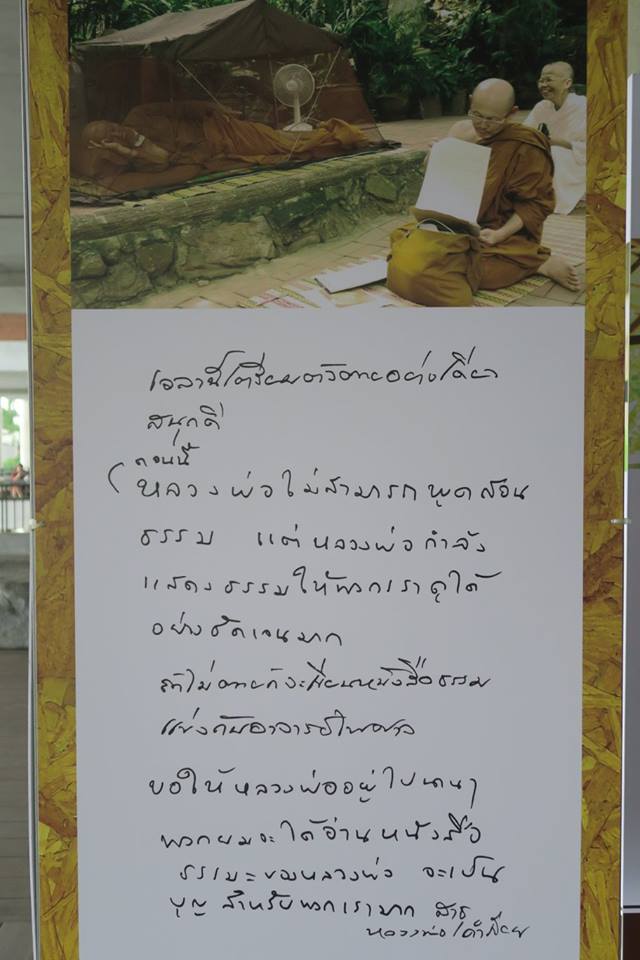 เวลานี้เตรียมตัวตายอย่างเดียว
สนุกดี
ตอนนี้
(หลวงพ่อไม่สามารถพูดสอน
ธรรม แต่หลวงพ่อกำลัง
แสดงธรรมให้พวกเราดูได้
อย่างชัดเจนมาก
ถ้าไม่ตายก็จะเขียนหนังสือธรรม
แข่งกับอาจารย์ไพศาล
ขอให้หลวงพ่ออยู่ไปนานๆ
พวกผมจะได้อ่านหนังสือ
ธรรมะของหลวงพ่อ จะเป็น
บุญสำหรับพวกเรามาก สาธุ
หลวงพ่อคำเขียน